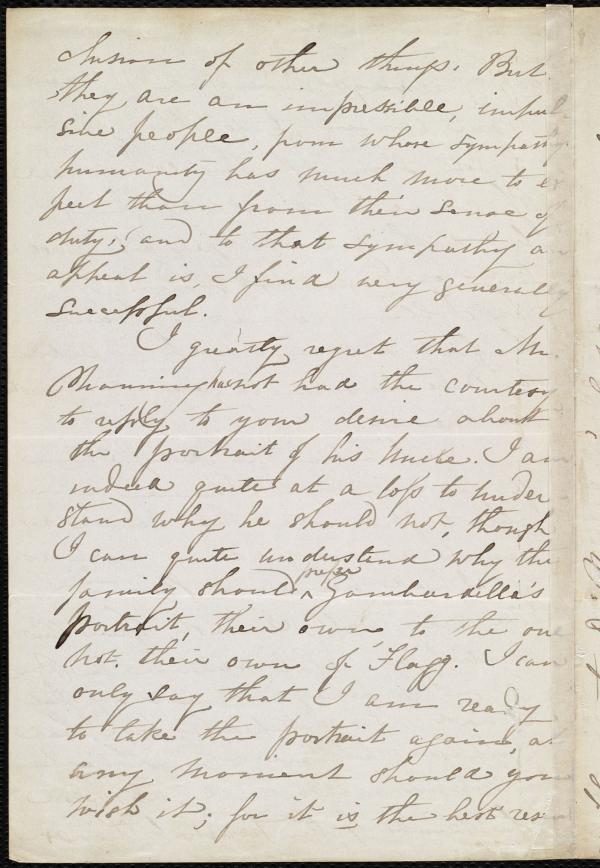 clusion of other things. But
they are an impressible, impul
sive people, from whose sympathy
humanity has much more to ex
pect than from their sense of
duty; and to that sympathy an
appeal is, I find very generally
successful.
I greatly regret that Mr.
Manning has not had the courtesy
to reply to your desire about
the portrait of his Uncle. I am
indeed quite at a loss to under
stand why he should not, though
I can quite understand why the
family should prefer Gambardella's
portrait, their own, to the one
not their own of Flagg. I can
only say that I am ready
to take the portrait again, at
any moment should you
wish it; for it is the best